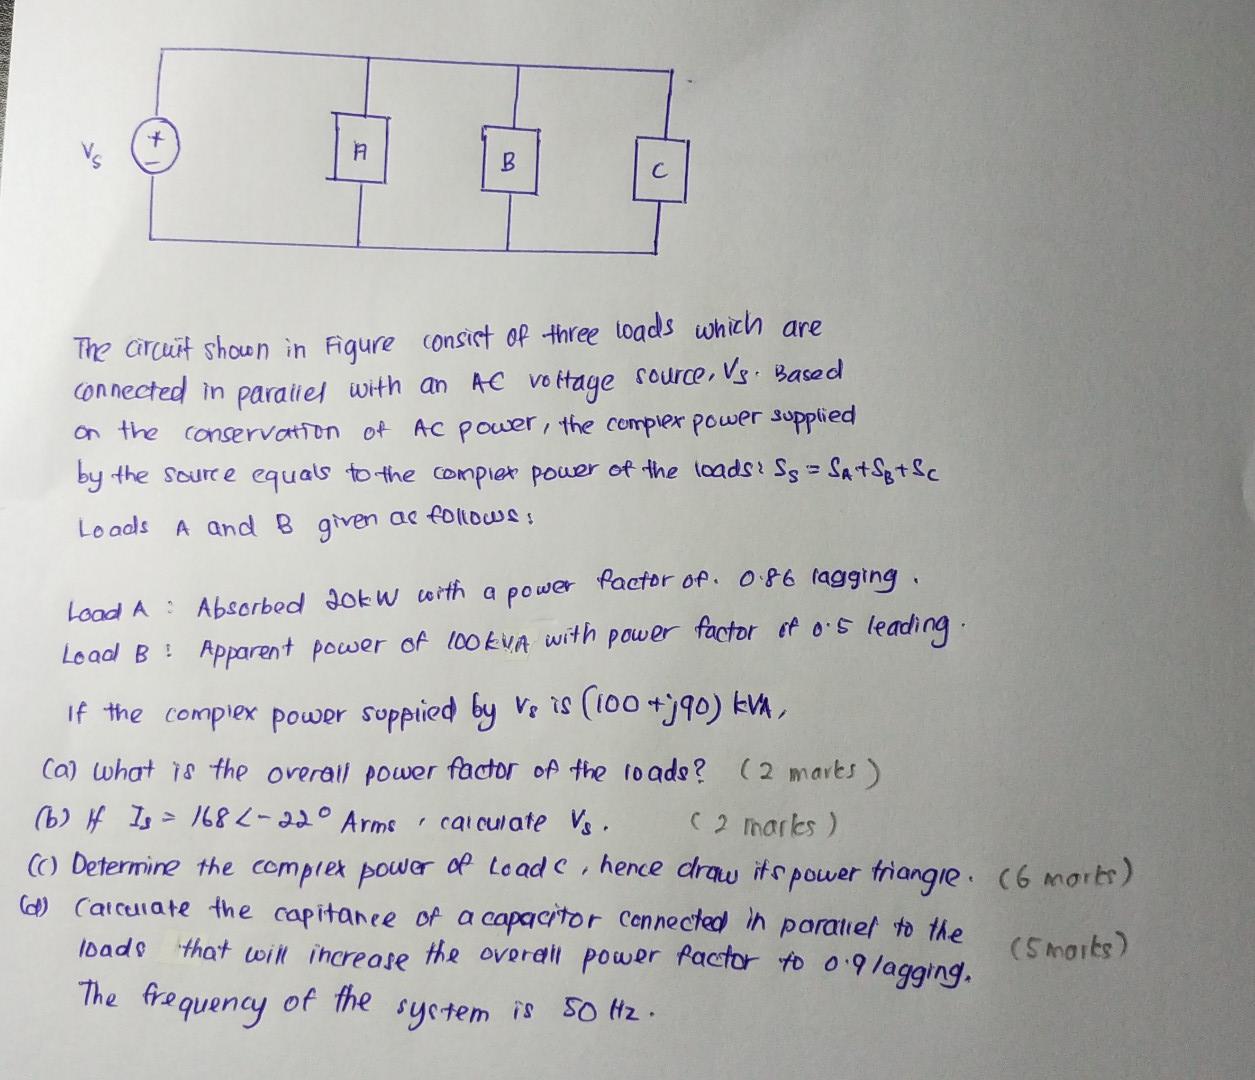 Vs
+
A
B
C
The circuit shown in Figure consist of three loads which are
connected in parallel with an AC voltage source, Vs. Based
on the conservation of AC power, the complex power supplied
by the source equals to the complex power of the loads: Ss = SA + SB + Sc
Loads A and B given as follows:
Load A : Absorbed 20kW with a power factor of. 0.86 lagging.
Load B : Apparent power of 100 kVA with power factor of 0.5 leading.
If the complex power supplied by Vs is (100 + j90) kVA,
(a) what is the overall power factor of the loads? (2 marks)
(b) If Is = 168 ∠-22° Arms, calculate Vs. (2 marks)
(c) Determine the complex power of Load C, hence draw its power triangle. (6 marks)
(d) Calculate the capitance of a capacitor connected in parallel to the
loads that will increase the overall power factor to 0.9 lagging. (5 marks)
The frequency of the system is 50 Hz.